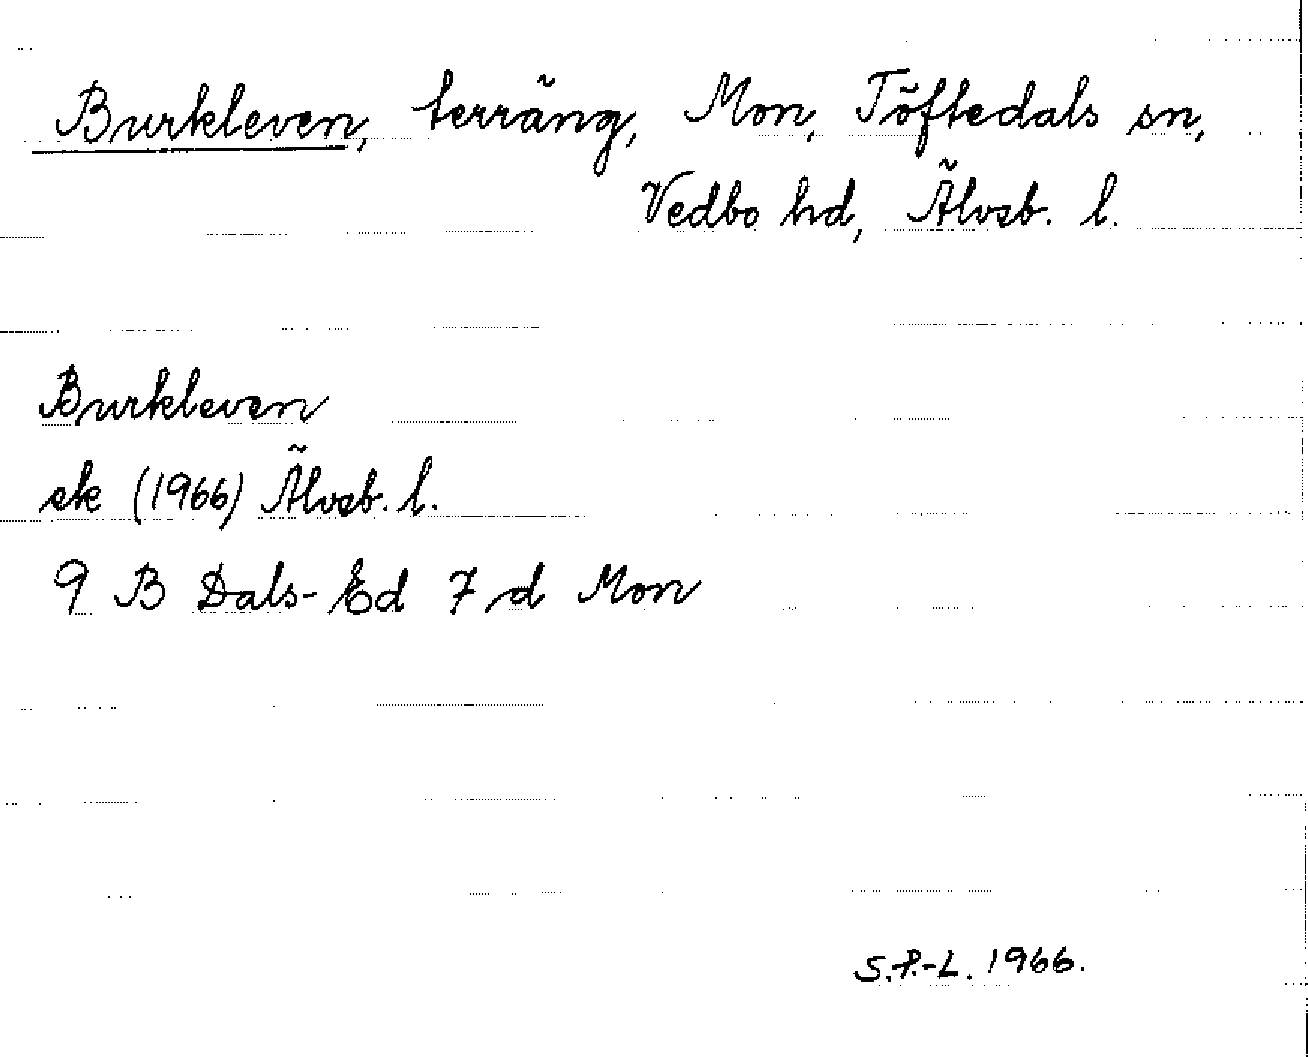 Burkleven, terräng, Mon, Töftedals sn,
Vedbo hd, Älvsb. l.
Burkleven
ek (1966) Älvsb. l.
9 B Dals-Ed 7 d Mon
S.P.-L. 1966.